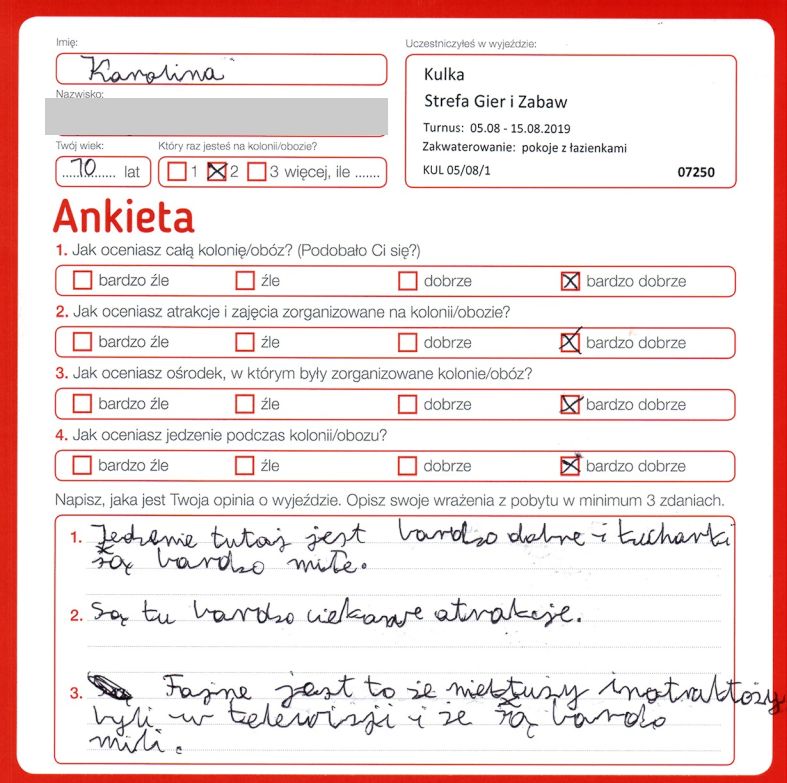 Imię:
Karolina
Uczestniczyłeś w wyjeździe:
Kulka
Strefa Gier i Zabaw
Turnus: 05.08 - 15.08.2019
Zakwaterowanie: pokoje z łazienkami
KUL 05/08/1 07250
Nazwisko:
Twój wiek:
10 lat
Który raz jesteś na kolonii/obozie?
1 2 3 więcej, ile .......
Ankieta
1. Jak oceniasz całą kolonię/obóz? (Podobało Ci się?)
bardzo źle źle dobrze bardzo dobrze
2. Jak oceniasz atrakcje i zajęcia zorganizowane na kolonii/obozie?
bardzo źle źle dobrze bardzo dobrze
3. Jak oceniasz ośrodek, w którym były zorganizowane kolonie/obóz?
bardzo źle źle dobrze bardzo dobrze
4. Jak oceniasz jedzenie podczas kolonii/obozu?
bardzo źle źle dobrze bardzo dobrze
Napisz, jaka jest Twoja opinia o wyjeździe. Opisz swoje wrażenia z pobytu w minimum 3 zdaniach.
1. Jedzenie tutaj jest bardzo dobre i kucharki
są bardzo miłe.
2. Są tu bardzo ciekawe atrakcje.
3. Fajne jest to że niektuży instruktoży
byli w telewizji i że są bardo
mili.